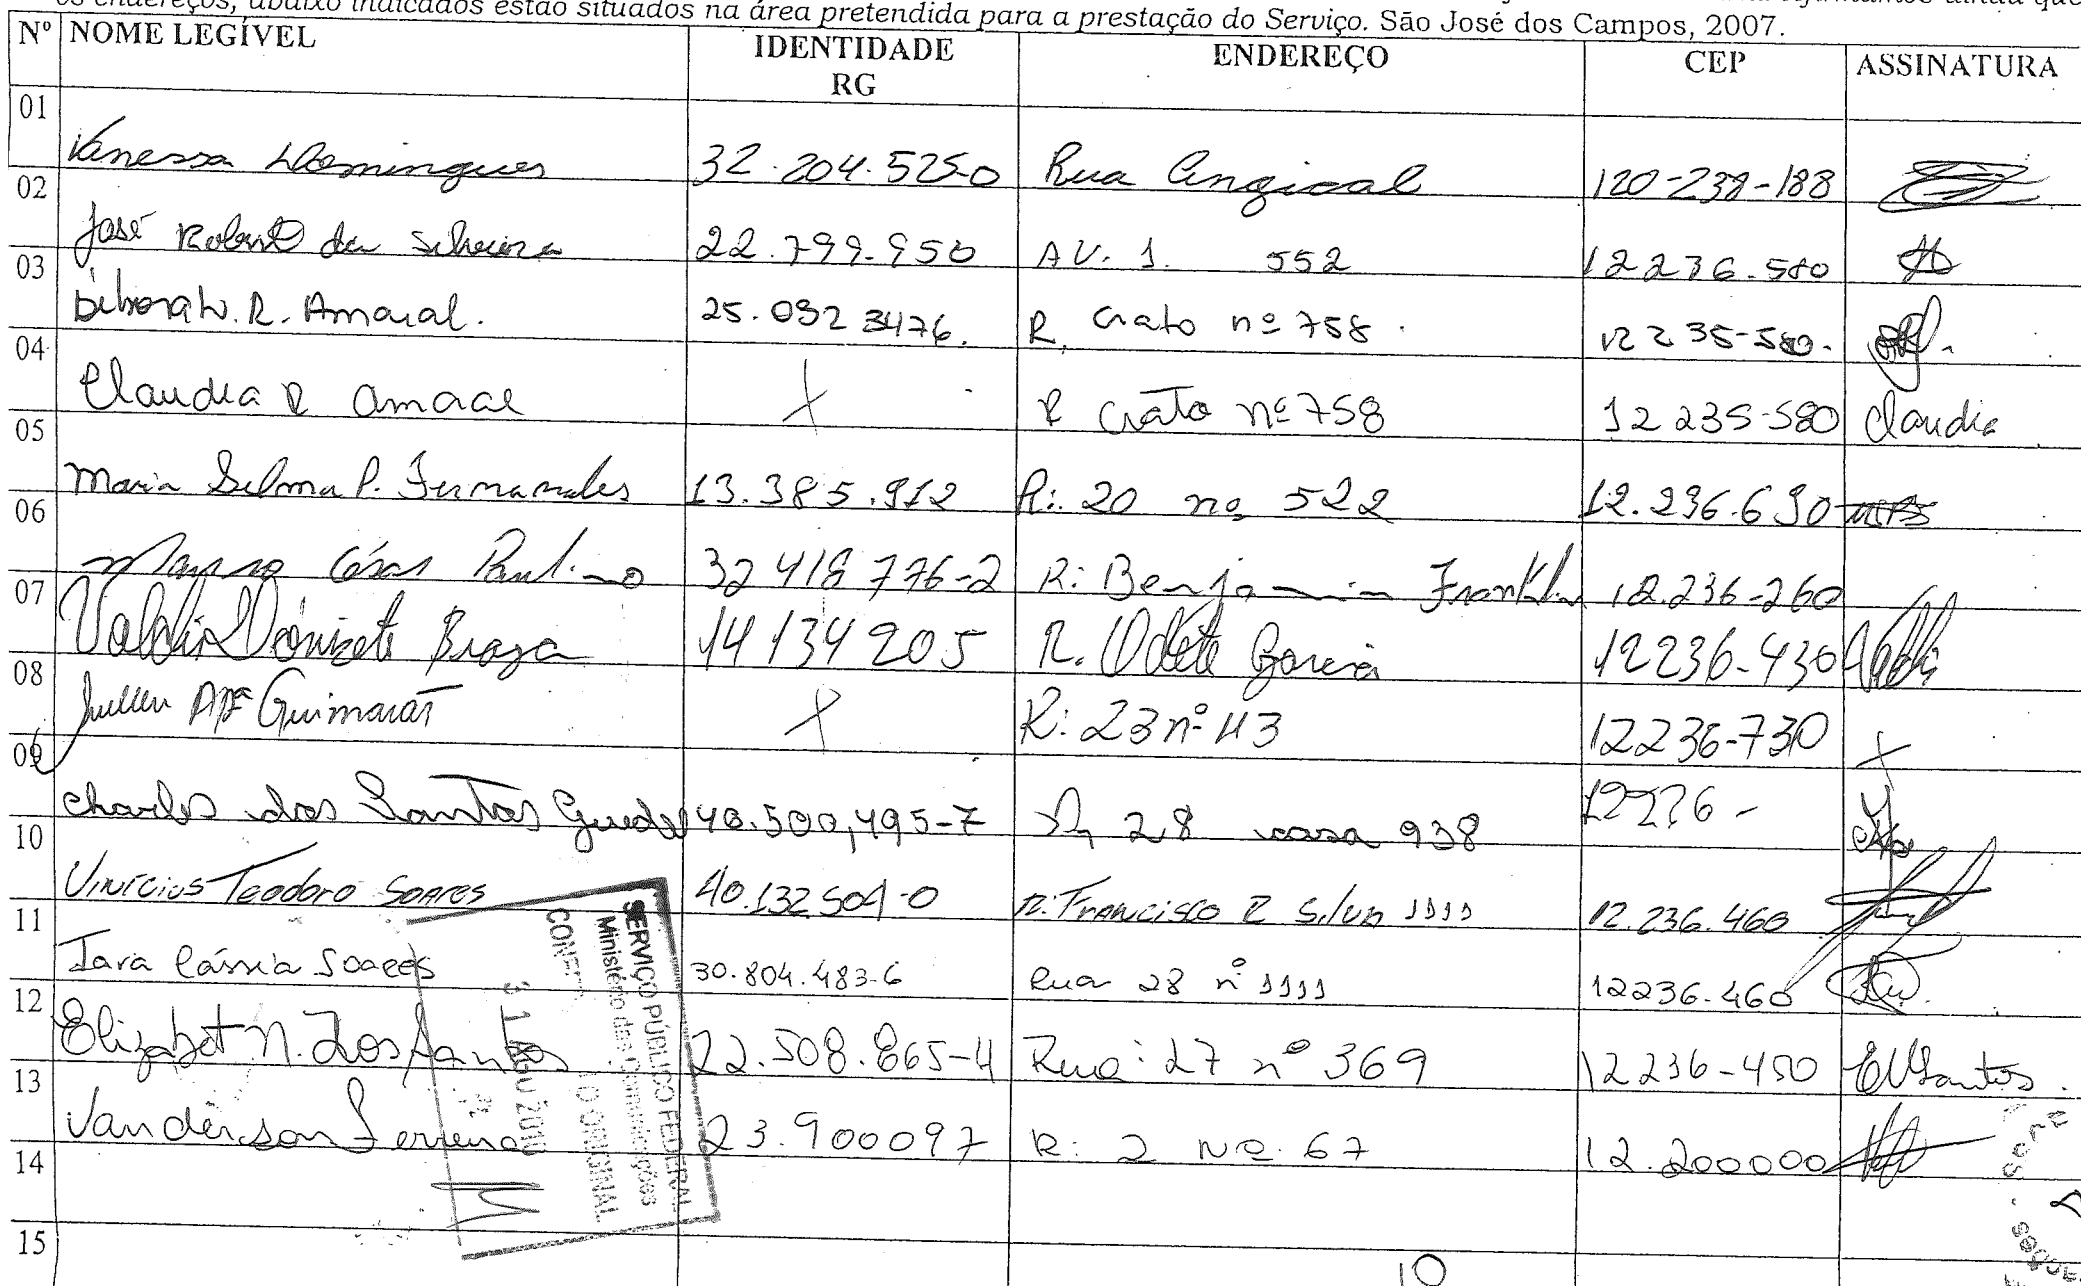 os endereços, abaixo indicados estão situados na área pretendida para a prestação do Serviço. São José dos Campos, 2007.
Nº NOME LEGÍVEL IDENTIDADE RG ENDEREÇO CEP ASSINATURA
01 Vanessa Domingues 32.204.525-0 Rua Angical 120-238-188
02 José Roberto da Silveira 22.799.950 AV. 1. 552 12236.580
03 Débora W. R. Amaral. 25.032 3476. R. Crato nº 758. 12235-580.
04 Claudia R Amaral X R Crato nº 758 12235-580 Claudia
05 Maria Selma P. Fernandes 13.385.912 R: 20 nº 522 12.236.690
06 César Paulino 32 418 776-2 R: Benjamin Franklin 12.236-260
07 Valdir Donizete Braga 14134205 R. Odete Garcia 12236-430
08 Apª Guimarães X R: 23 nº 43 12236-730 X
09 Charles dos Santos Guedes 40.500,495-7 R, 28 casa 938 12236-
10 Vinicius Teodoro Soares 40.132504-0 R. Francisco R Silva 1111 12.236.460
11 Iara Cássia Soares 30.804.483-6 Rua 28 nº 1111 12236.460
12 Elizabet N. Dos Santos 22.508.865-4 Rua: 27 nº 369 12236-450 ENSantos.
13 Vanderson Ferreira 23.900097 R: 2 Nº. 67 12.200000
14
15
SERVIÇO PÚBLICO FEDERAL
Ministério das Comunicações
O ORIGINAL
31 AGO 2010
10